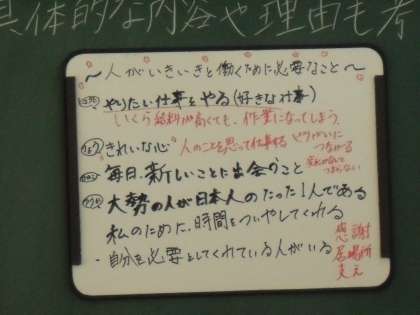 具体的な内容や理由も考
～人がいきいきと働くために必要なこと～
やりたい仕事をやる(好きな仕事)
いくら給料が高くても、作業になってしまう。
きれいな心 人のことを思って仕事する やりがいに
つながる
毎日、新しいことに出会うこと
変化がないと
つまらない
大勢の人が日本人のたった1人である
私のために、時間をついやしてくれる
・自分を必要としてくれている人がいる
感謝
居場所
支え